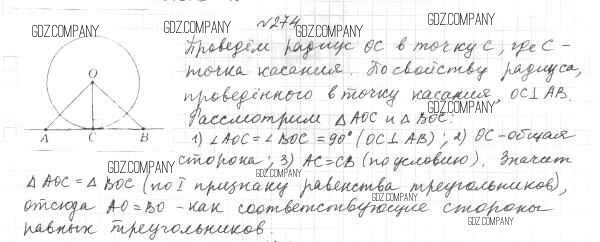 №274
GDZ.COMPANY GDZ.COMPANY GDZ.COMPANY
Проведём радиус OC в точку C, где C -
точка касания. По свойству радиуса,
проведённого в точку касания, OC⊥AB.
GDZ.COMPANY
Рассмотрим △AOC и △BOC:
O
1) ∠AOC = ∠BOC = 90° (OC⊥AB); 2) OC - общая
A C B
сторона; 3) AC=CB (по условию). Значит
GDZ.COMPANY GDZ.COMPANY
△AOC = △BOC (по I признаку равенства треугольников),
GDZ.COMPANY
отсюда AO=BO - как соответствующие стороны
GDZ.COMPANY
равных треугольников.